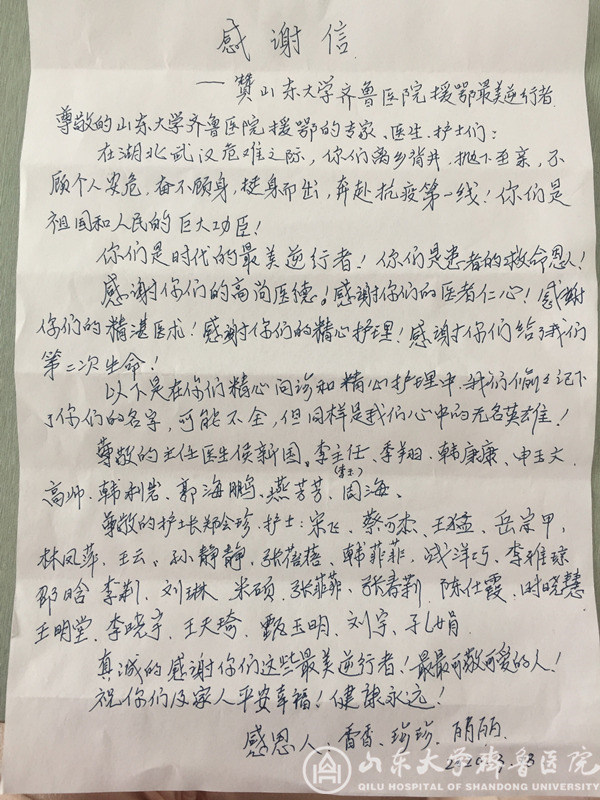 感谢信
——赞山东大学齐鲁医院援鄂最美逆行者
尊敬的山东大学齐鲁医院援鄂的专家、医生、护士们：
在湖北武汉危难之际，你们离乡背井，抛下至亲，不
顾个人安危，奋不顾身，挺身而出，奔赴抗疫第一线！你们是
祖国和人民的巨大功臣！
你们是时代的最美逆行者！你们是患者的救命恩人！
感谢你们的高尚医德！感谢你们的医者仁心！感谢
你们的精湛医术！感谢你们的精心护理！感谢你们给了我们
第二次生命！
以下是在你们精心问诊和精心护理中，我们偷偷记下
了你们的名字，可能不全，但同样是我们心中的无名英雄！
尊敬的主任医生侯新国、李主任、李翔、韩康康、申玉文
高帅、韩利岩、郭海鹏、燕芳芳、周海、
尊敬的护士长郑会珍、护士：宋飞、蔡可杰、王猛、岳宗甲、
林凤萍、王云、孙静静、张蓓蓓、韩菲菲、战洋巧、李雅琼
邵晗 李荆、刘琳、米硕、张菲菲、张春莉 陈仕霞、时晓慧
王明堂、李晓宇、王天琦、甄玉明、刘宇、孔娟
真诚的感谢你们这些最美逆行者！最最可敬可爱的人！
祝你们及家人平安幸福！健康永远！
感恩人：香香、珍珍、丽丽
2020.3.3
山东大学齐鲁医院
QILU HOSPITAL OF SHANDONG UNIVERSITY